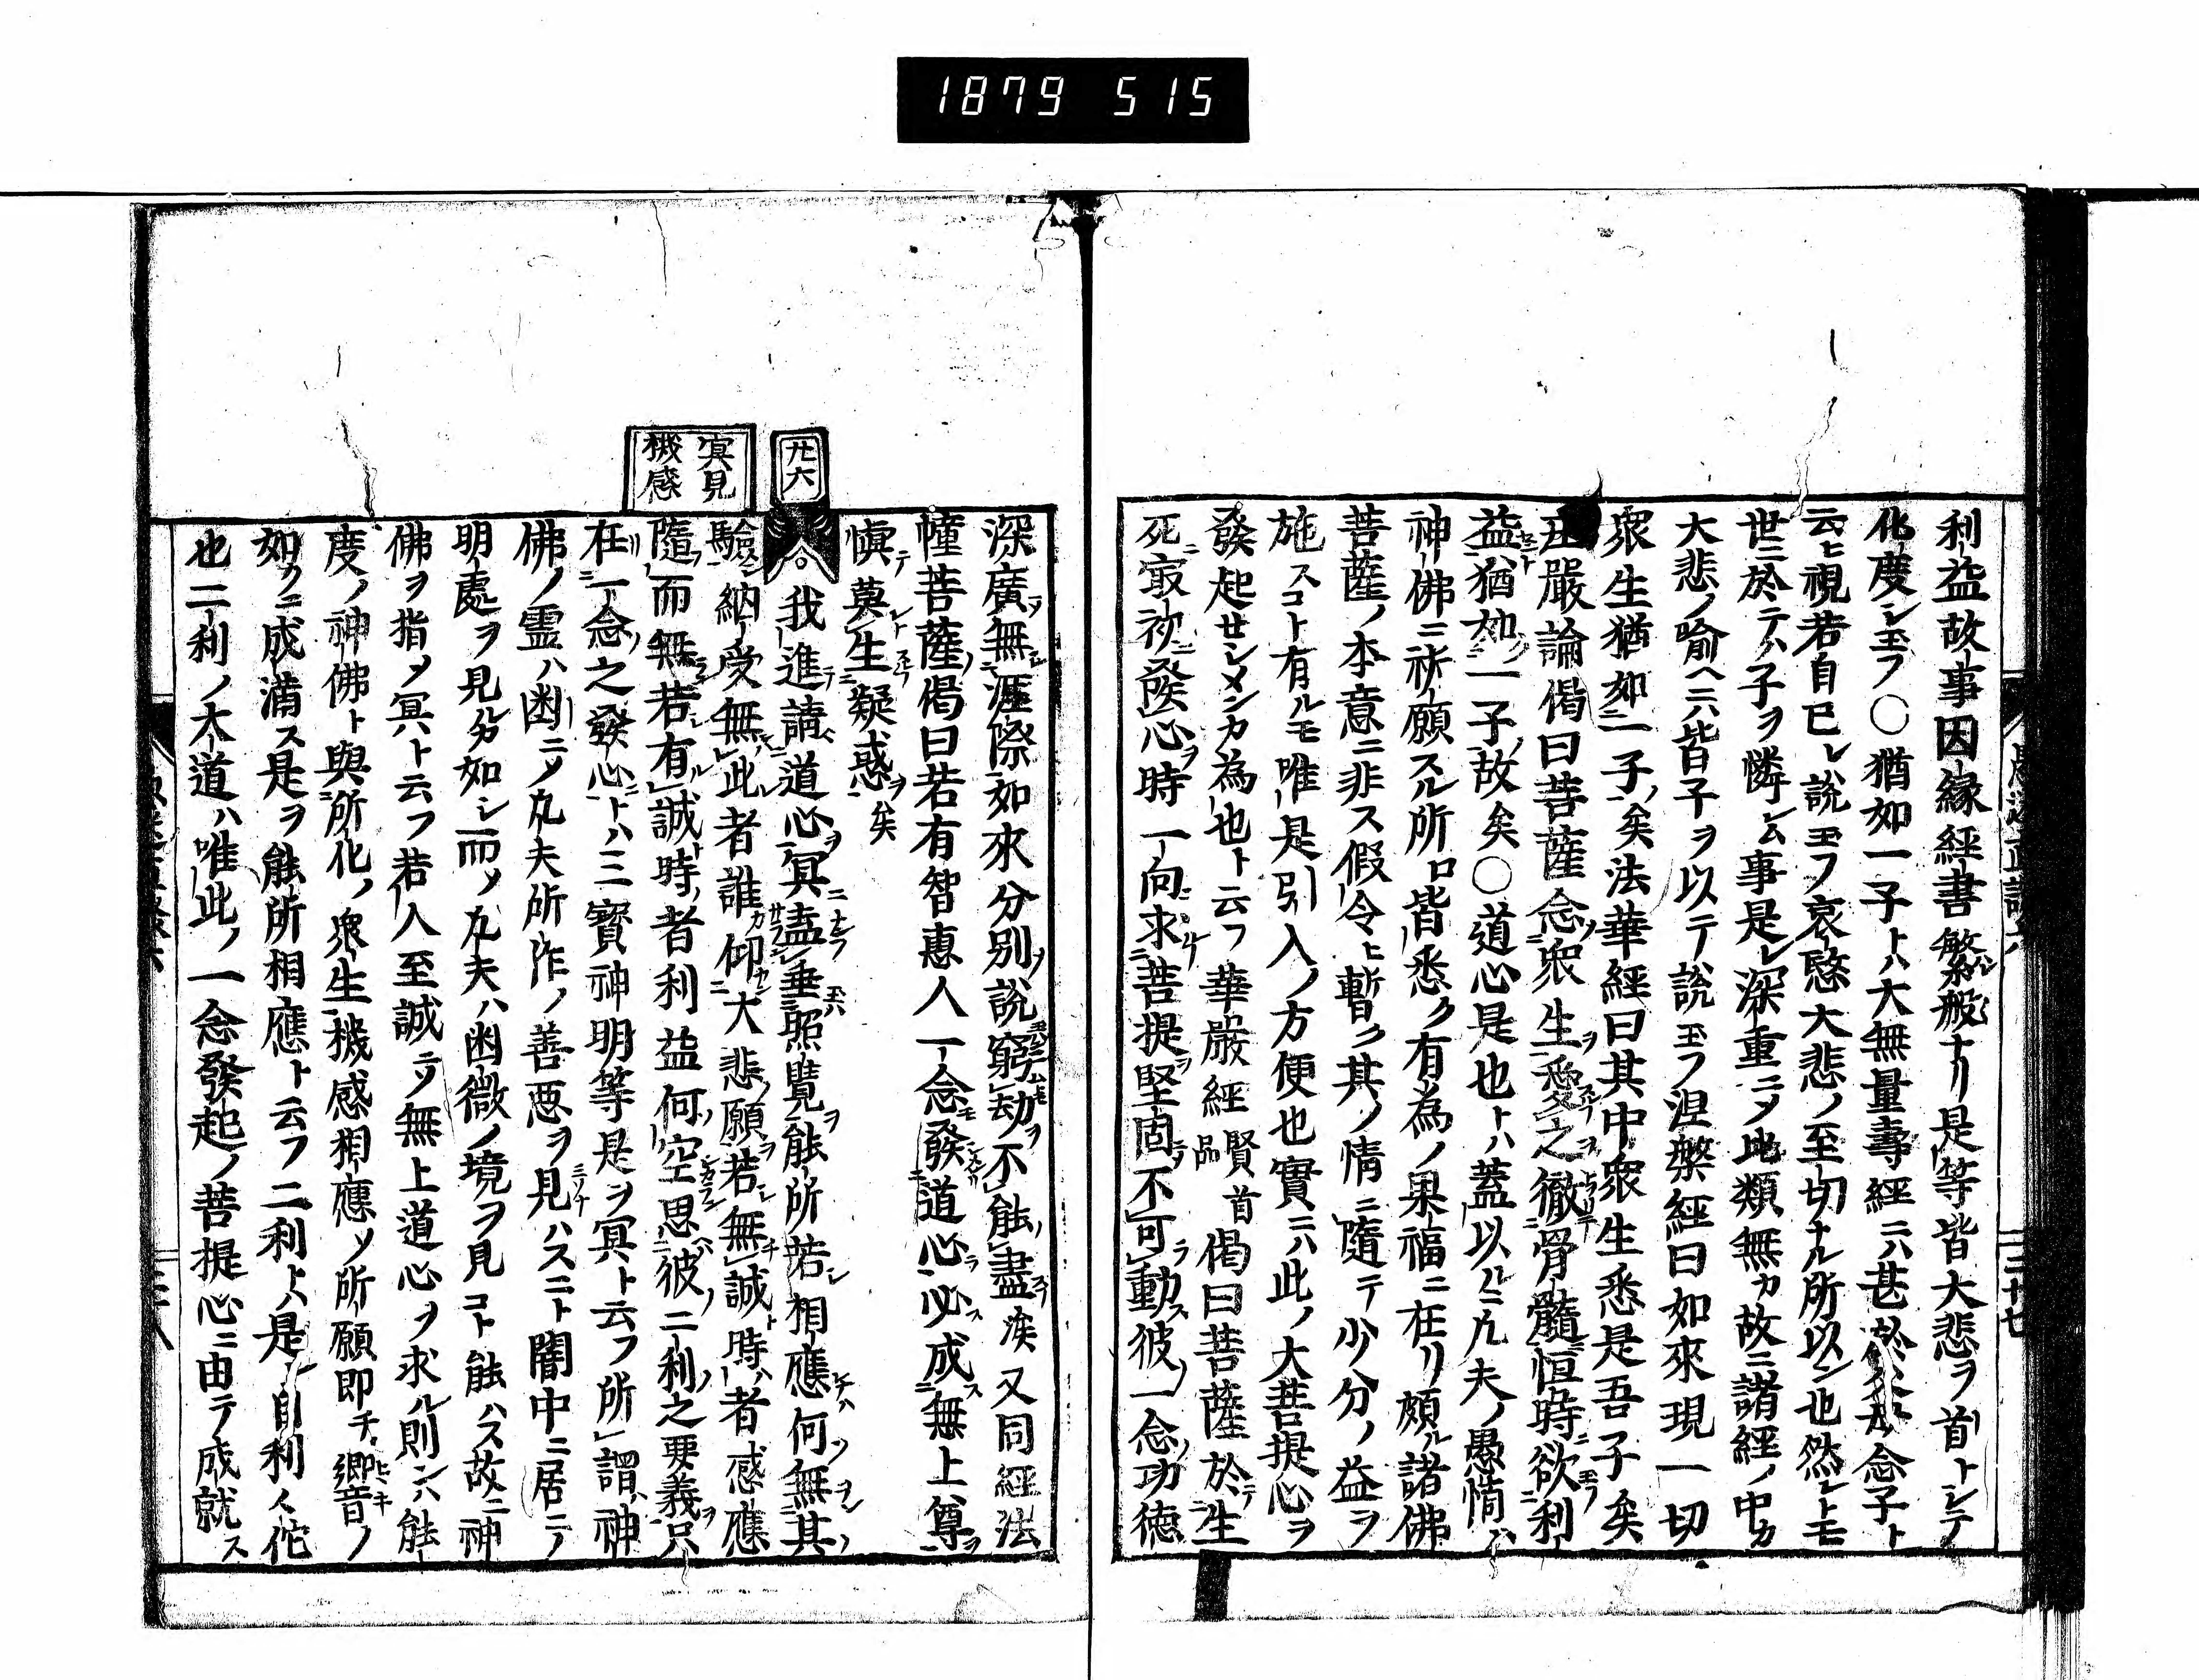 1879 515
利益故事因縁經書繁般ナリ是等皆大悲ヲ首トシテ
化度シ玉フ○猶如一子トハ大無量壽經ニハ甚於父母念子ト
云ヒ視若自己レ說玉フ哀愍大悲ノ至切ナル所以ン也然レトモ
世ニ於テハ子ヲ憐レム事是レ深重ニメ此類無カ故ニ諸經ノ中カ
大悲ノ喩ヘニハ皆子ヲ以テ說玉フ涅槃經曰如來現一切
衆生猶如一子矣法華經曰其中衆生悉是吾子矣
莊嚴論偈曰菩薩念衆生愛之徹骨髓恒時欲利
益猶如一子故矣○道心是也トハ蓋以ルニ凡夫ノ愚情ハ
神佛ニ祈願スル所ロ皆悉ク有為ノ果福ニ在リ頗ル諸佛
菩薩ノ本意ニ非ス假令ヒ暫ク其ノ情ニ隨テ少分ノ益ヲ
施スコト有ルモ唯是引入ノ方便也實ニハ此ノ大菩提心ヲ
發起セシメンカ為也ト云フ華嚴經賢首品偈曰菩薩於生
死最初發心時一向求菩提堅固不可動彼一念功德
深廣無涯際如來分別說窮劫不能盡矣又同經法
幢菩薩偈曰若有智惠人一念發道心必成無上尊
愼莫生疑惑矣
廿六
冥見
機感
我進請道心冥盡垂照覽能所若相應何無其
驗納受無此者誰仰大悲願若無誠時者感應
隨而無若有誠時者利益何空思彼二利之要義只
在一念之發心トハ三寳神明等是ヲ冥ト云フ所謂神
佛ノ霊ハ幽ニメ凡夫所作ノ善悪ヲ見ハスニト闇中ニ居テ
明處ヲ見ルカ如シ而メ凡夫ハ幽微ノ境ヲ見コト能ハス故ニ神
佛ヲ指メ冥ト云フ若人至誠ニヲ無上道心ヲ求ル則ンハ能
度ノ神佛ト與所化ノ衆生機感相應ソ所願即チ響音ノ
如クニ成滿ス是ヲ能所相應ト云フ二利トハ是レ自利々佗
也二利ノ大道ハ唯此ノ一念發起ノ菩提心ニ由テ成就ス